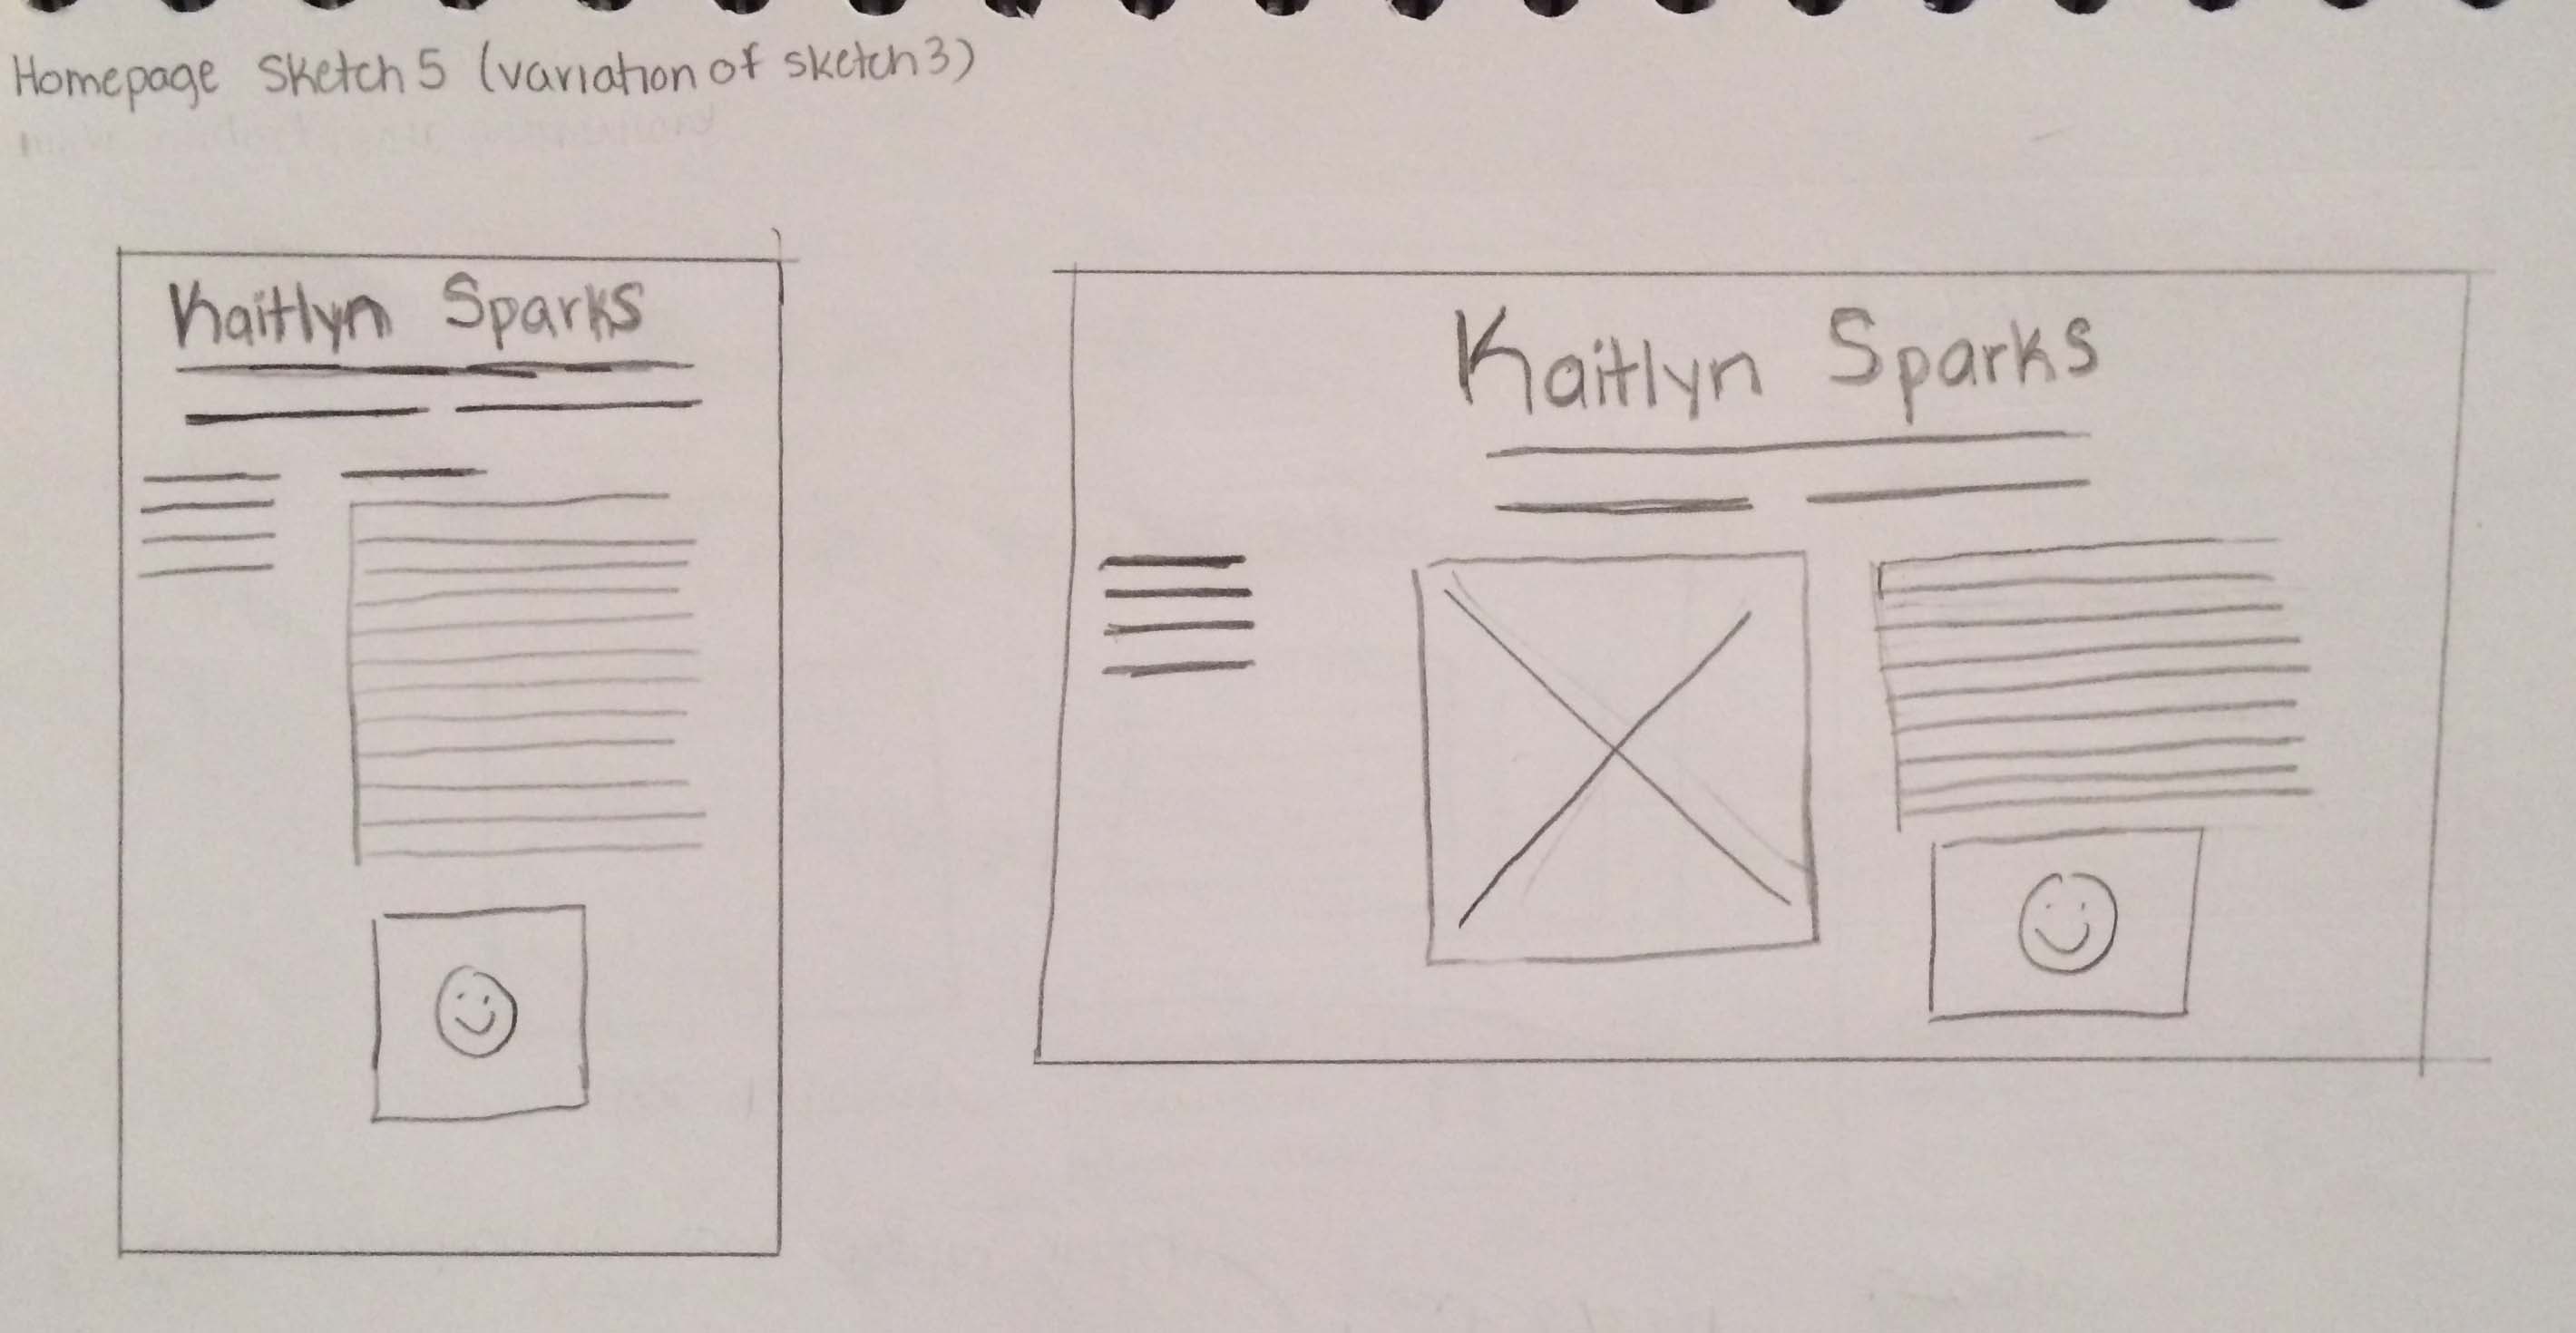 Homepage Sketch 5 (variation of sketch 3)
Kaitlyn Sparks
Kaitlyn Sparks